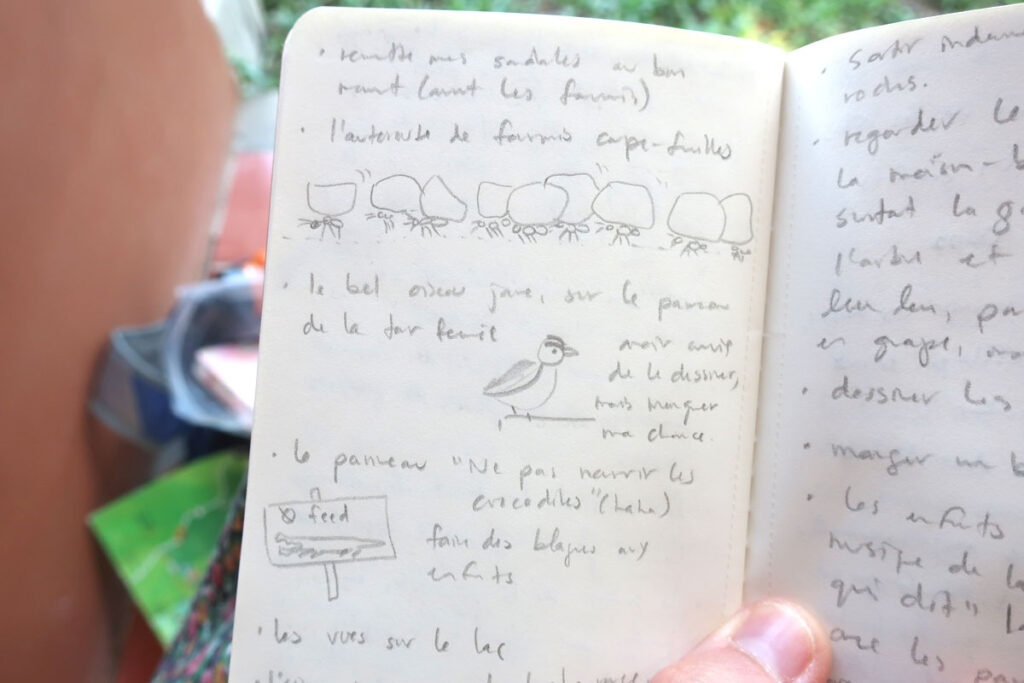 • remettre mes sandales au bon
(avant les fourmis)
• l'autoroute de fourmis coupe-feuilles
• le bel oiseau jaune, sur le panneau
de la
avoir envie
de le dessiner,
mais manquer
ma chance.
• le panneau "Ne pas nourrir les
crocodiles" (haha)
feed
faire des blagues aux
enfants
• les vues sur le lac
• sortir
roches.
• regarder le
la maison-b
surtout la
l'arbre et
leur, pa
en grappe,
• dessiner les
• manger un b
• les enfants
musique de la
qui dit "
avec les pa